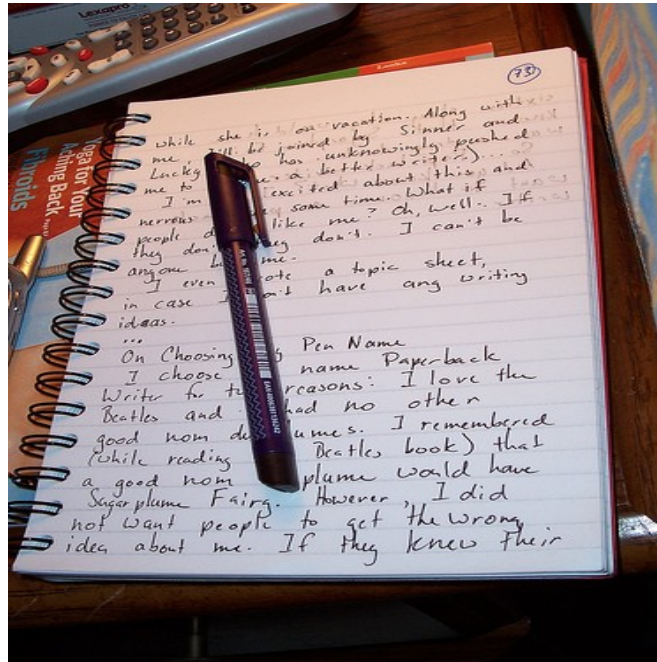 Lexapro
73
while she is on vacation. Along with
me, I'll be joined by Sinner and
Lucky who has unknowingly pushed
me to a better writer)...
I'm excited about this and
nervous some time. What if
people like me? Oh, well. If
they don't they don't. I can't be
anyone me.
I even a topic sheet,
in case I don't have any writing
ideas.
...
On Choosing Pen Name
I choose name Paperback
Writer for reasons: I love the
Beatles and had no other
good nom de plumes. I remembered
(while reading Beatles book) that
a good nom plume would have
Sugarplume Fairy. However, I did
not want people to get the wrong
idea about me. If they knew their
Yoga for Your
Aching Back
Fibroids